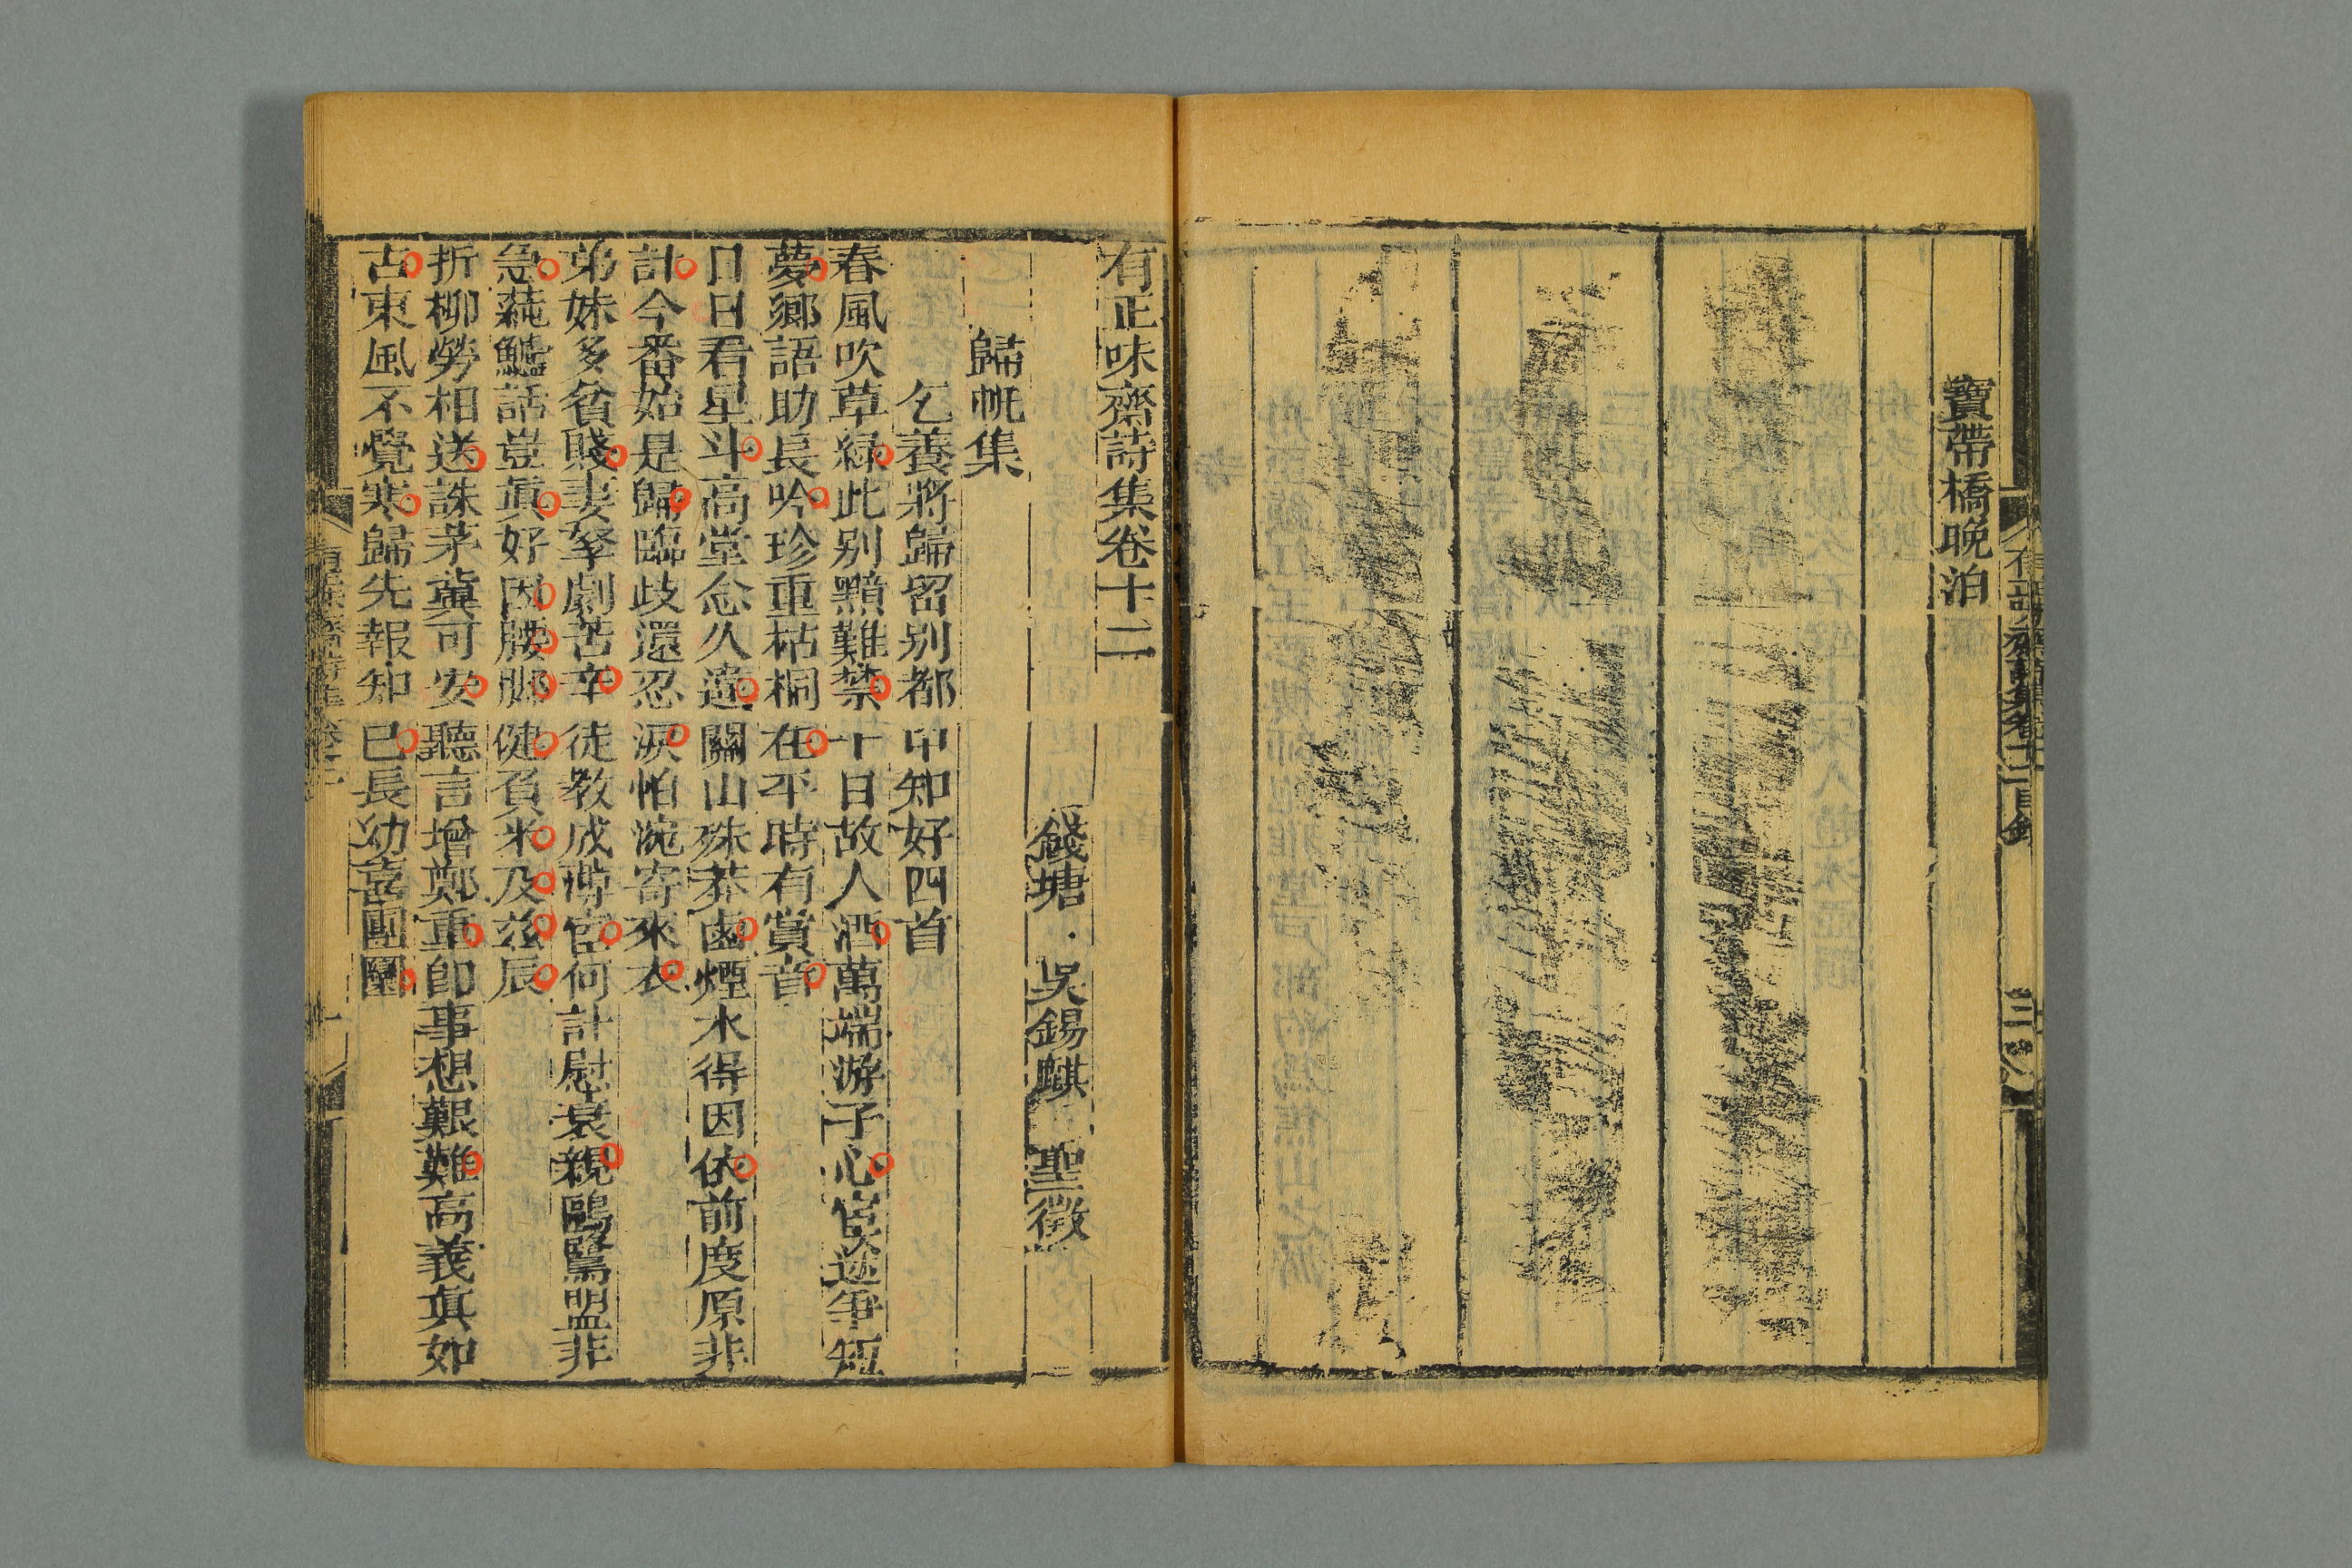 寶帶橋晚泊
有正味齋詩集卷十二目錄
三
有正味齋詩集卷十二
錢塘 吳錫麒 聖徵
歸帆集
乞養將歸留别都中知好四首
春風吹草綠此别黯難禁十日故人酒萬端游子心宦迹爭短
夢鄉語助長吟珍重枯桐在平時有賞音
日日看星斗高堂念久違關山殊莽鹵煙水得因依前度原非
計今番始是歸臨歧還忍淚怕涴寄來衣
弟妹多貧賤妻孥劇苦辛徒教成薄宦何計慰衰親鷗鷺盟非
急蒓鱸話豈眞好因腰腳健負米及兹辰
折柳勞相送誅茅冀可安聽言增鄭重卽事想艱難高義眞如
古東風不覺寒歸先報知已長幼喜團圞